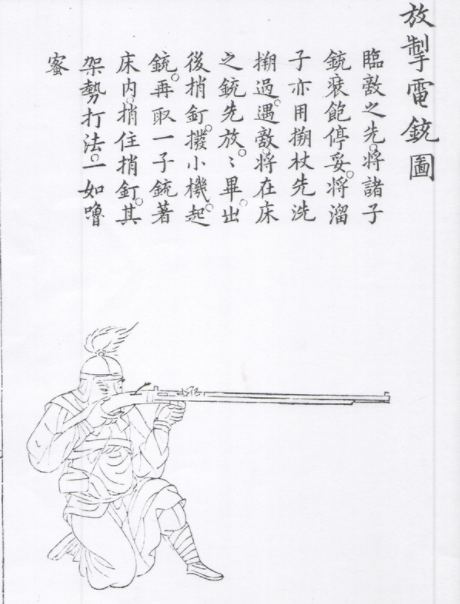 放掣電銃圖
臨敵之先。將諸子
銃裝飽停妥。將溜
子亦用搠杖先洗
搠過。遇敵。將在床
之銃先放。〻畢。出
後捎釘。撥小機。起
銃。再取一子銃著
床內。捎住捎釘。其
架勢打法。一如嚕
蜜